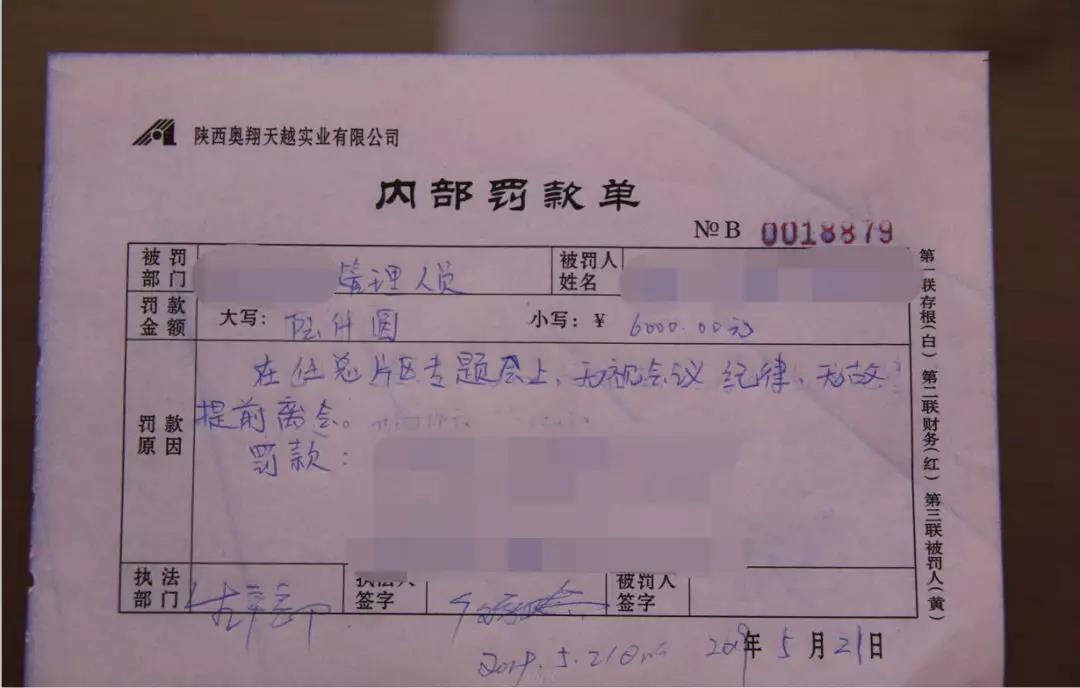 陕西奥翔天越实业有限公司
内部罚款单
№ B 0018879
被罚部门 管理人员 被罚人姓名
罚款金额 大写: 陆仟圆 小写: ¥ 6000.00元
罚款原因
在任总片区专题会上、无视会议纪律、无故
提前离会。
罚款:
执法部门 执法人签字 被罚人签字
2019.5.21
2019年5月21日
第一联存根(白) 第二联财务(红) 第三联被罚人(黄)